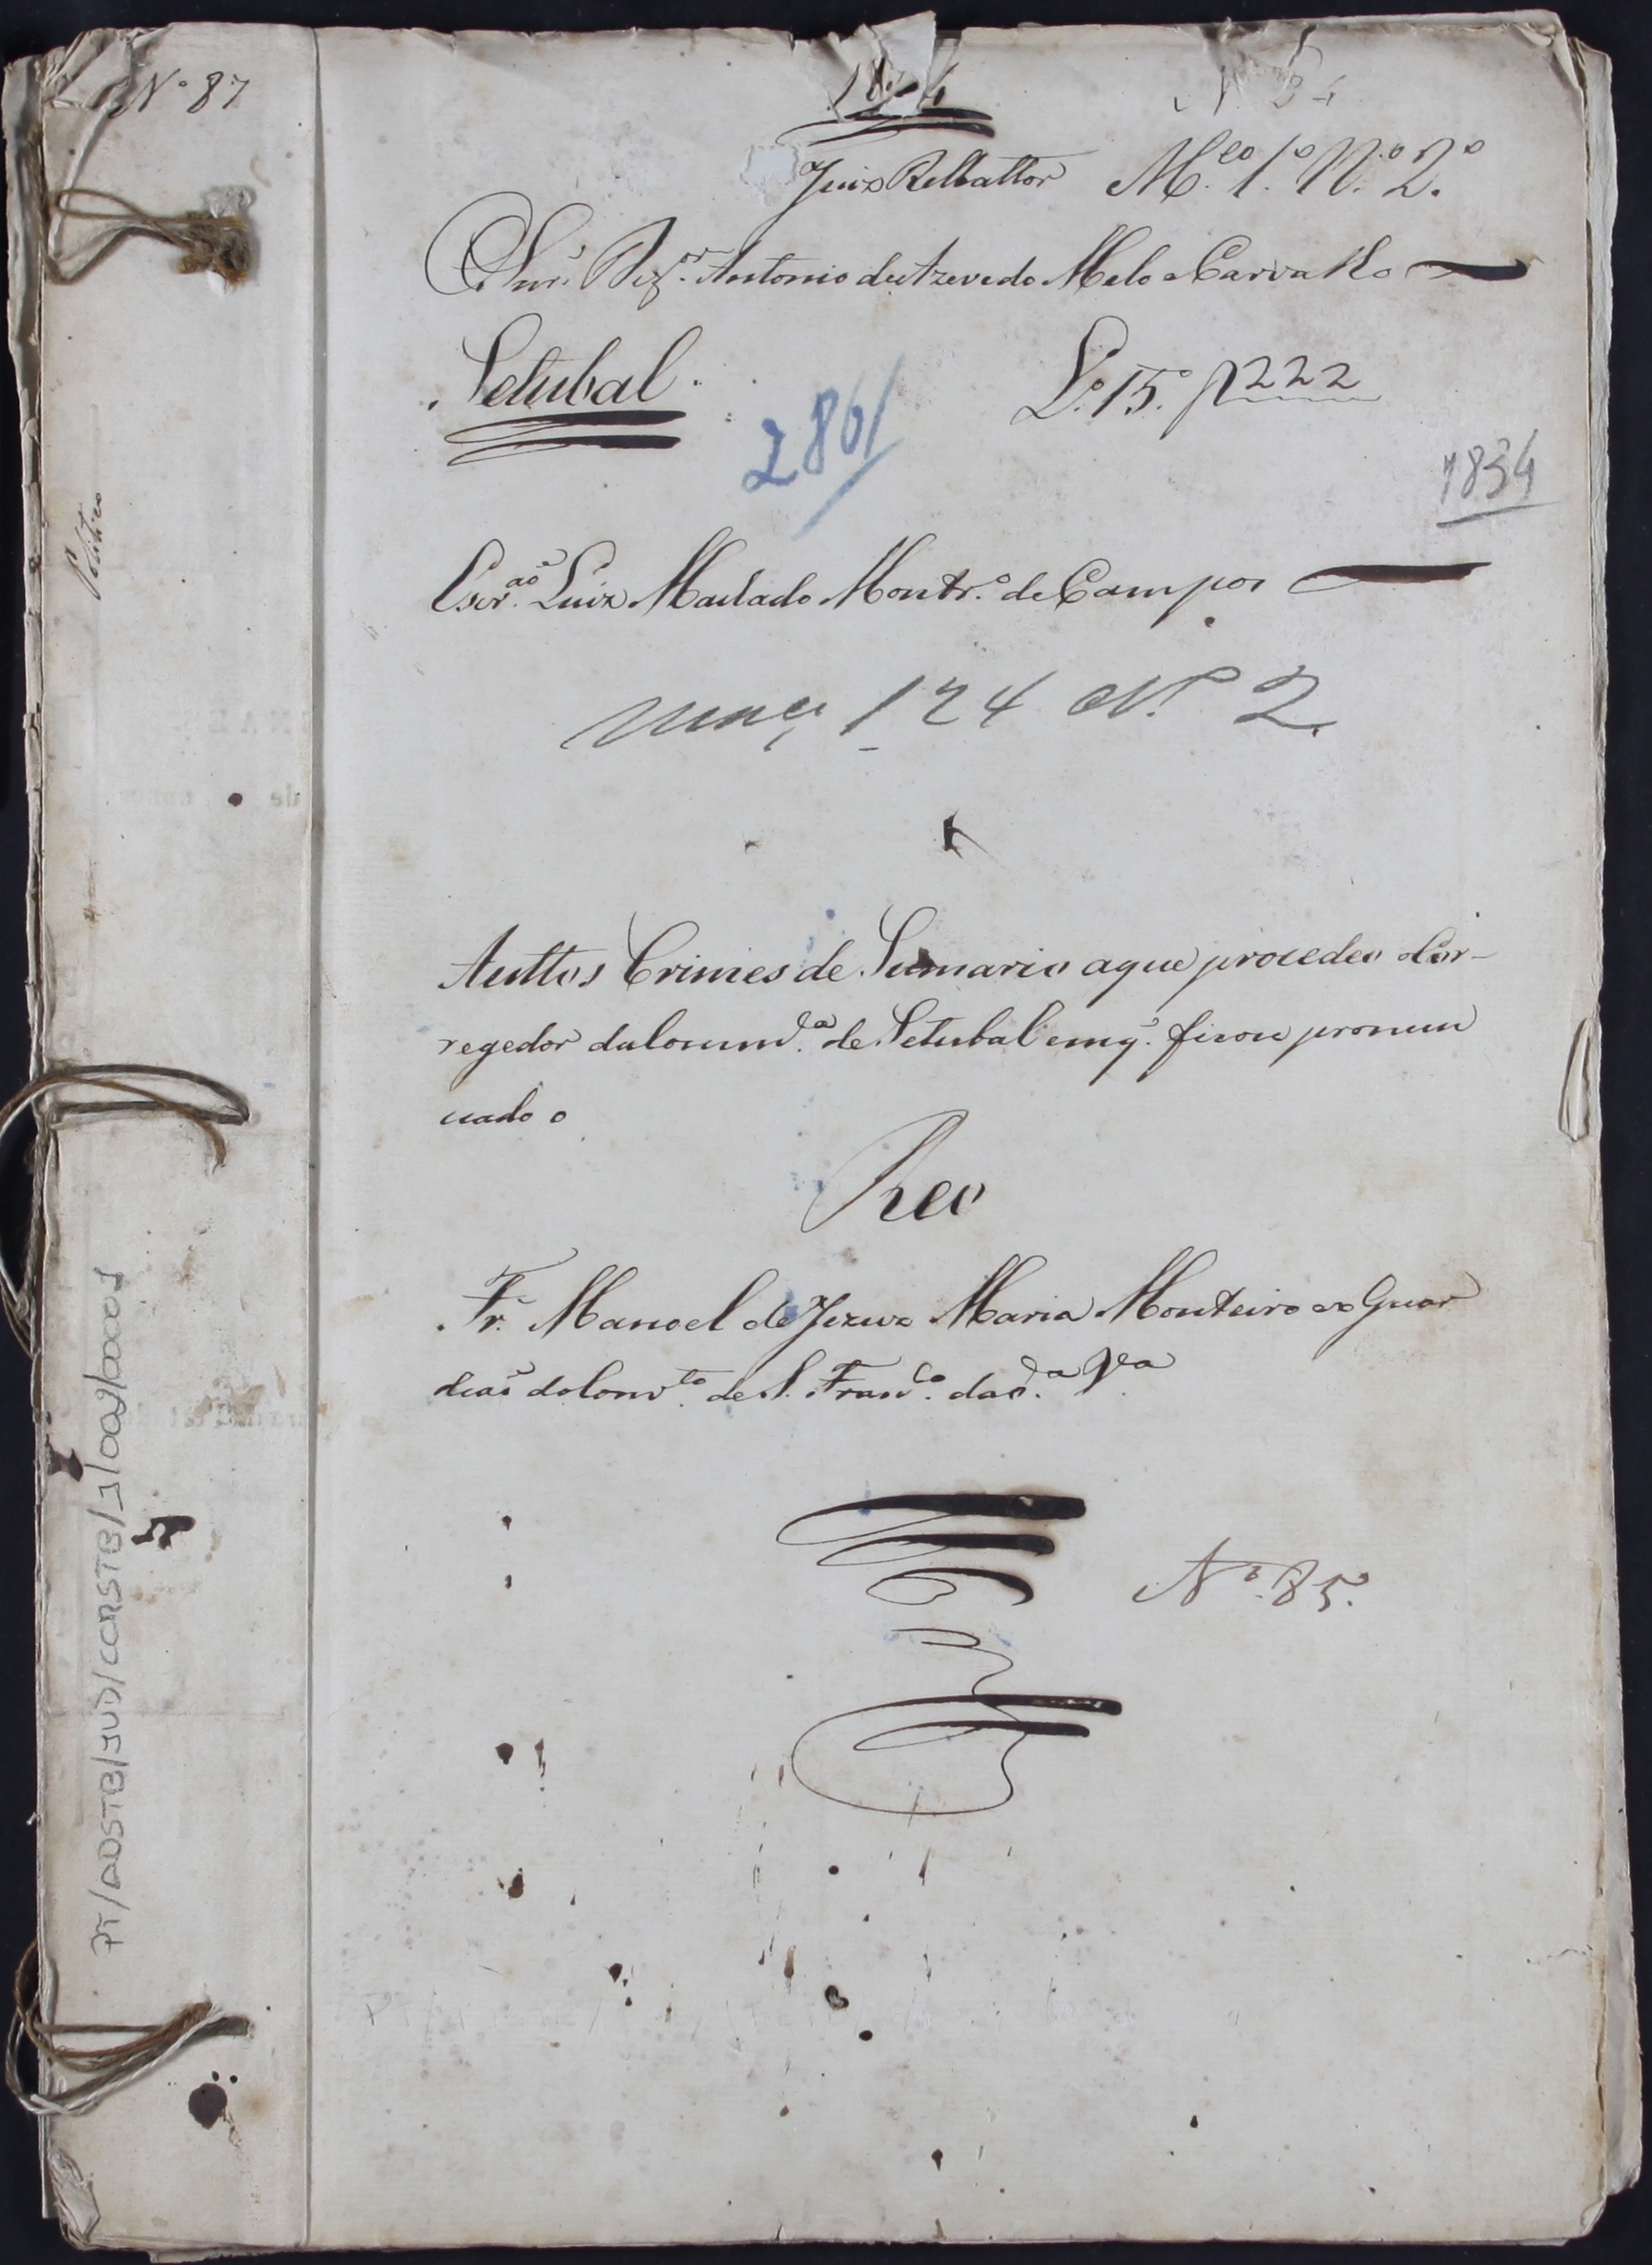 Nº 87
1834
Juiz Rellattor Mço. 1º. Nº. 2º.
O Snr. Dezor. Antonio de Azevedo Melo e Carvalho
Setubal.
Lº. 15. f 222
2861
1834
Escrão. Luiz Machado Montrº. de Campos
Maço 124 Nº 2
Politico
Auttos Crimes de Sumario a que procedeo o Cor-
regedor da Comarca de Setubal em q. ficou pronun
ciado o
Reo
Fr. Manoel de Jezuz Maria Monteiro ex Guar
diaõ do Convto. de S. Franco. da da. Va
Nº. 85.
PT/ADSTB/JUD/CORSTB/1/009/00001